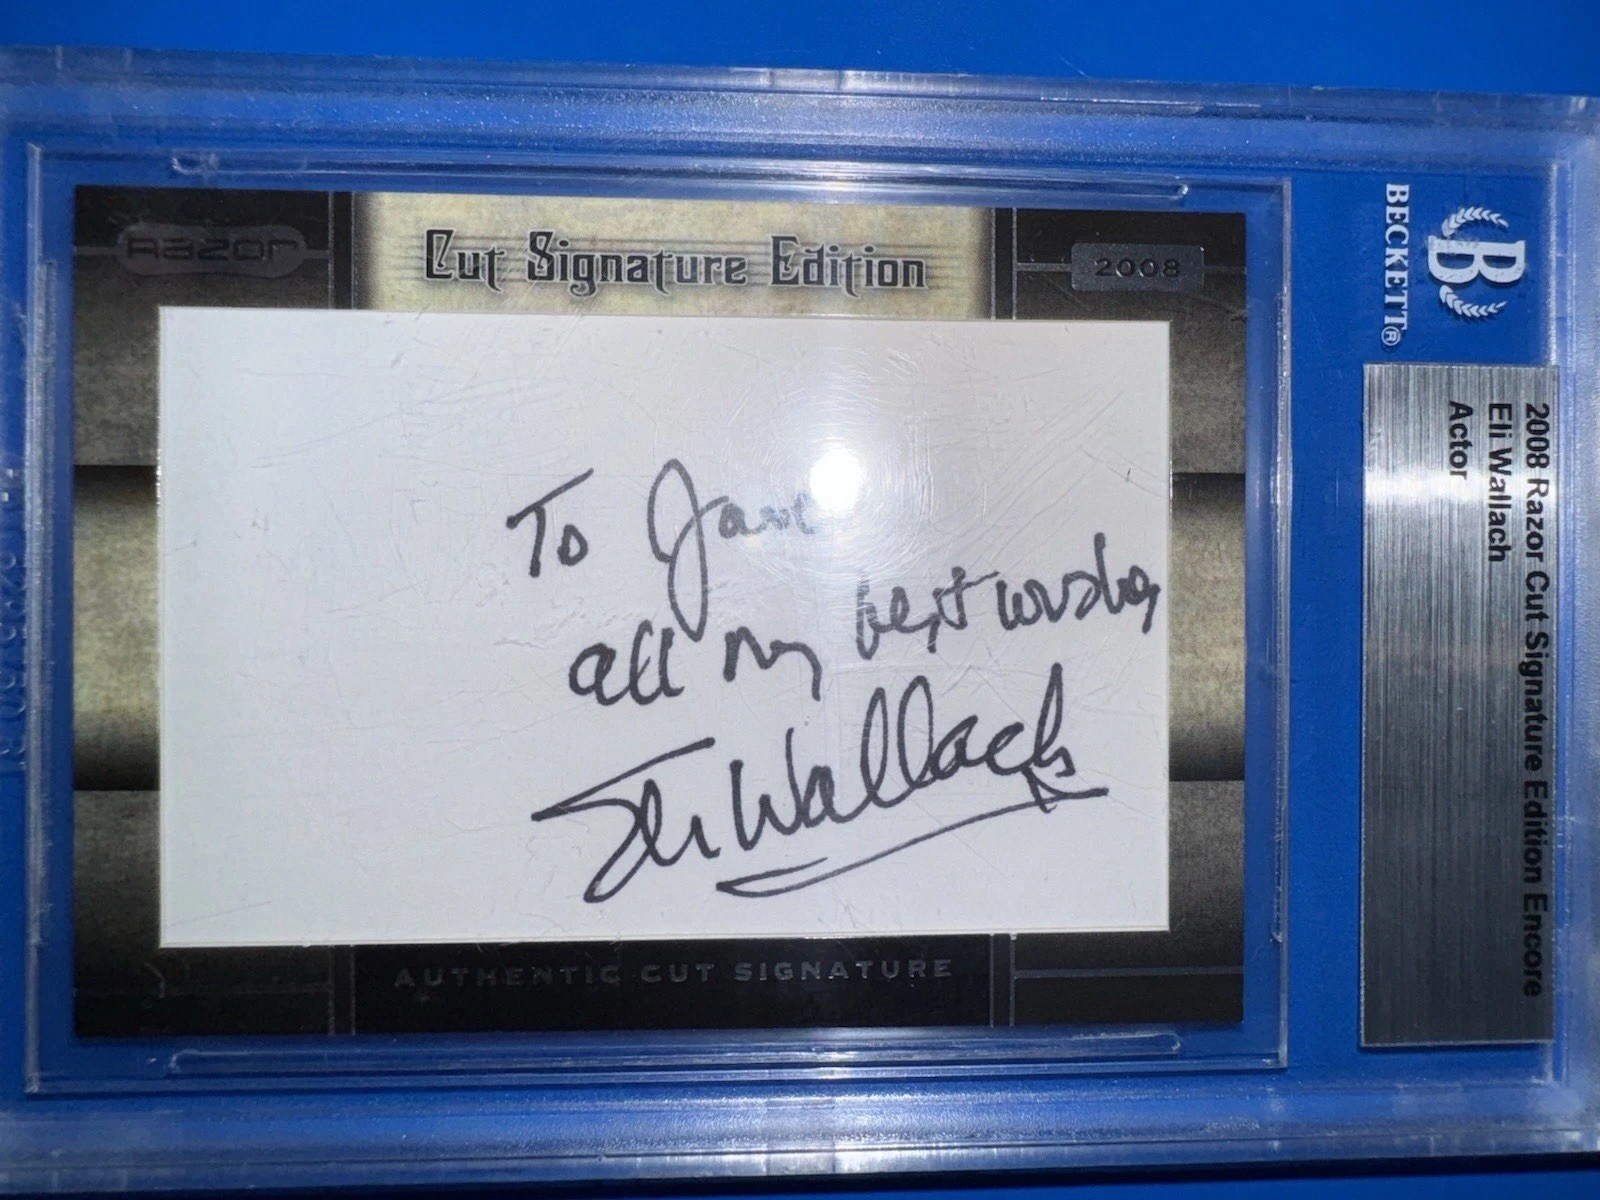 Razor
Cut Signature Edition
2008
To Jane
all my best wishes
Eli Wallach
AUTHENTIC CUT SIGNATURE
BECKETT®
B
2008 Razor Cut Signature Edition Encore
Eli Wallach
Actor